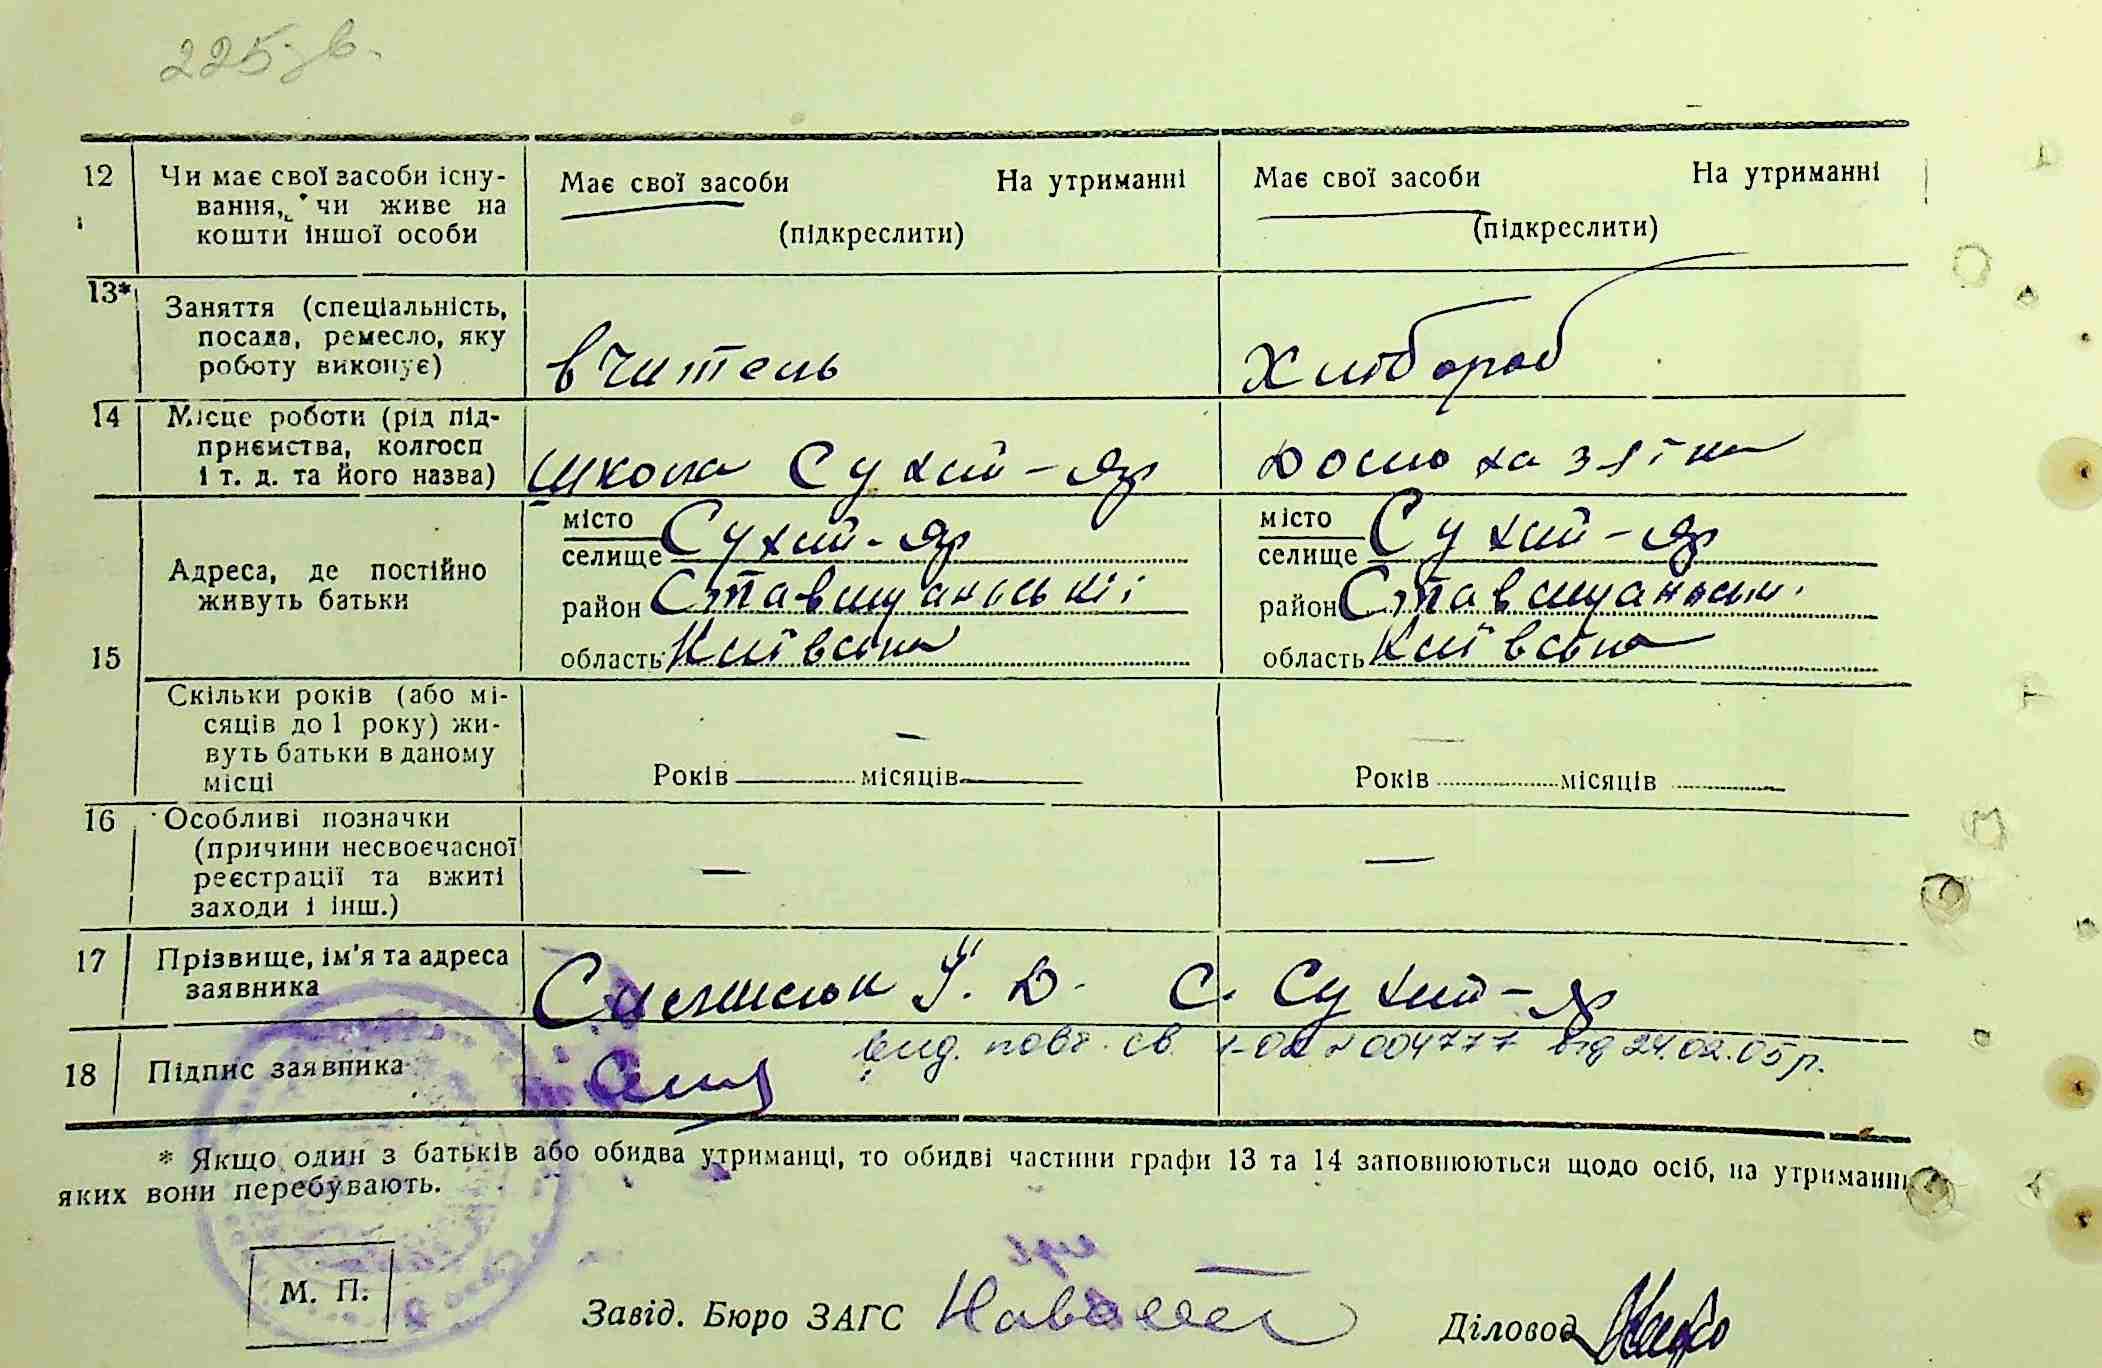 225 зв.
12 Чи має свої засоби існу- Має свої засоби На утриманні Має свої засоби На утриманні
вання, чи живе на
кошти іншої особи (підкреслити) (підкреслити)
13* Заняття (спеціальність,
посада, ремесло, яку
роботу виконує) вчитель Хлібороб
14 Місце роботи (рід під-
приємства, колгосп
і т. д. та його назва) Школа Сухий-Яр Домохазяїка
15 Адреса, де постійно
живуть батьки
місто Сухий-Яр місто Сухий-Яр
селище селище
район Ставищанський район Ставищанськ.
область Київська область Київська
Скільки років (або мі-
сяців до 1 року) жи-
вуть батьки в даному
місці Років — місяців — Років місяців
16 Особливі позначки
(причини несвоєчасної
реєстрації та вжиті
заходи і інш.) — —
17 Прізвище, ім'я та адреса
заявника Й. Д. С. Сухий-Яр
вид. повт. св. 004777 від 24.02.05 р.
18 Підпис заявника
* Якщо один з батьків або обидва утриманці, то обидві частини графи 13 та 14 заповнюються щодо осіб, на утриманні
яких вони перебувають.
М. П.
Завід. Бюро ЗАГС Діловод